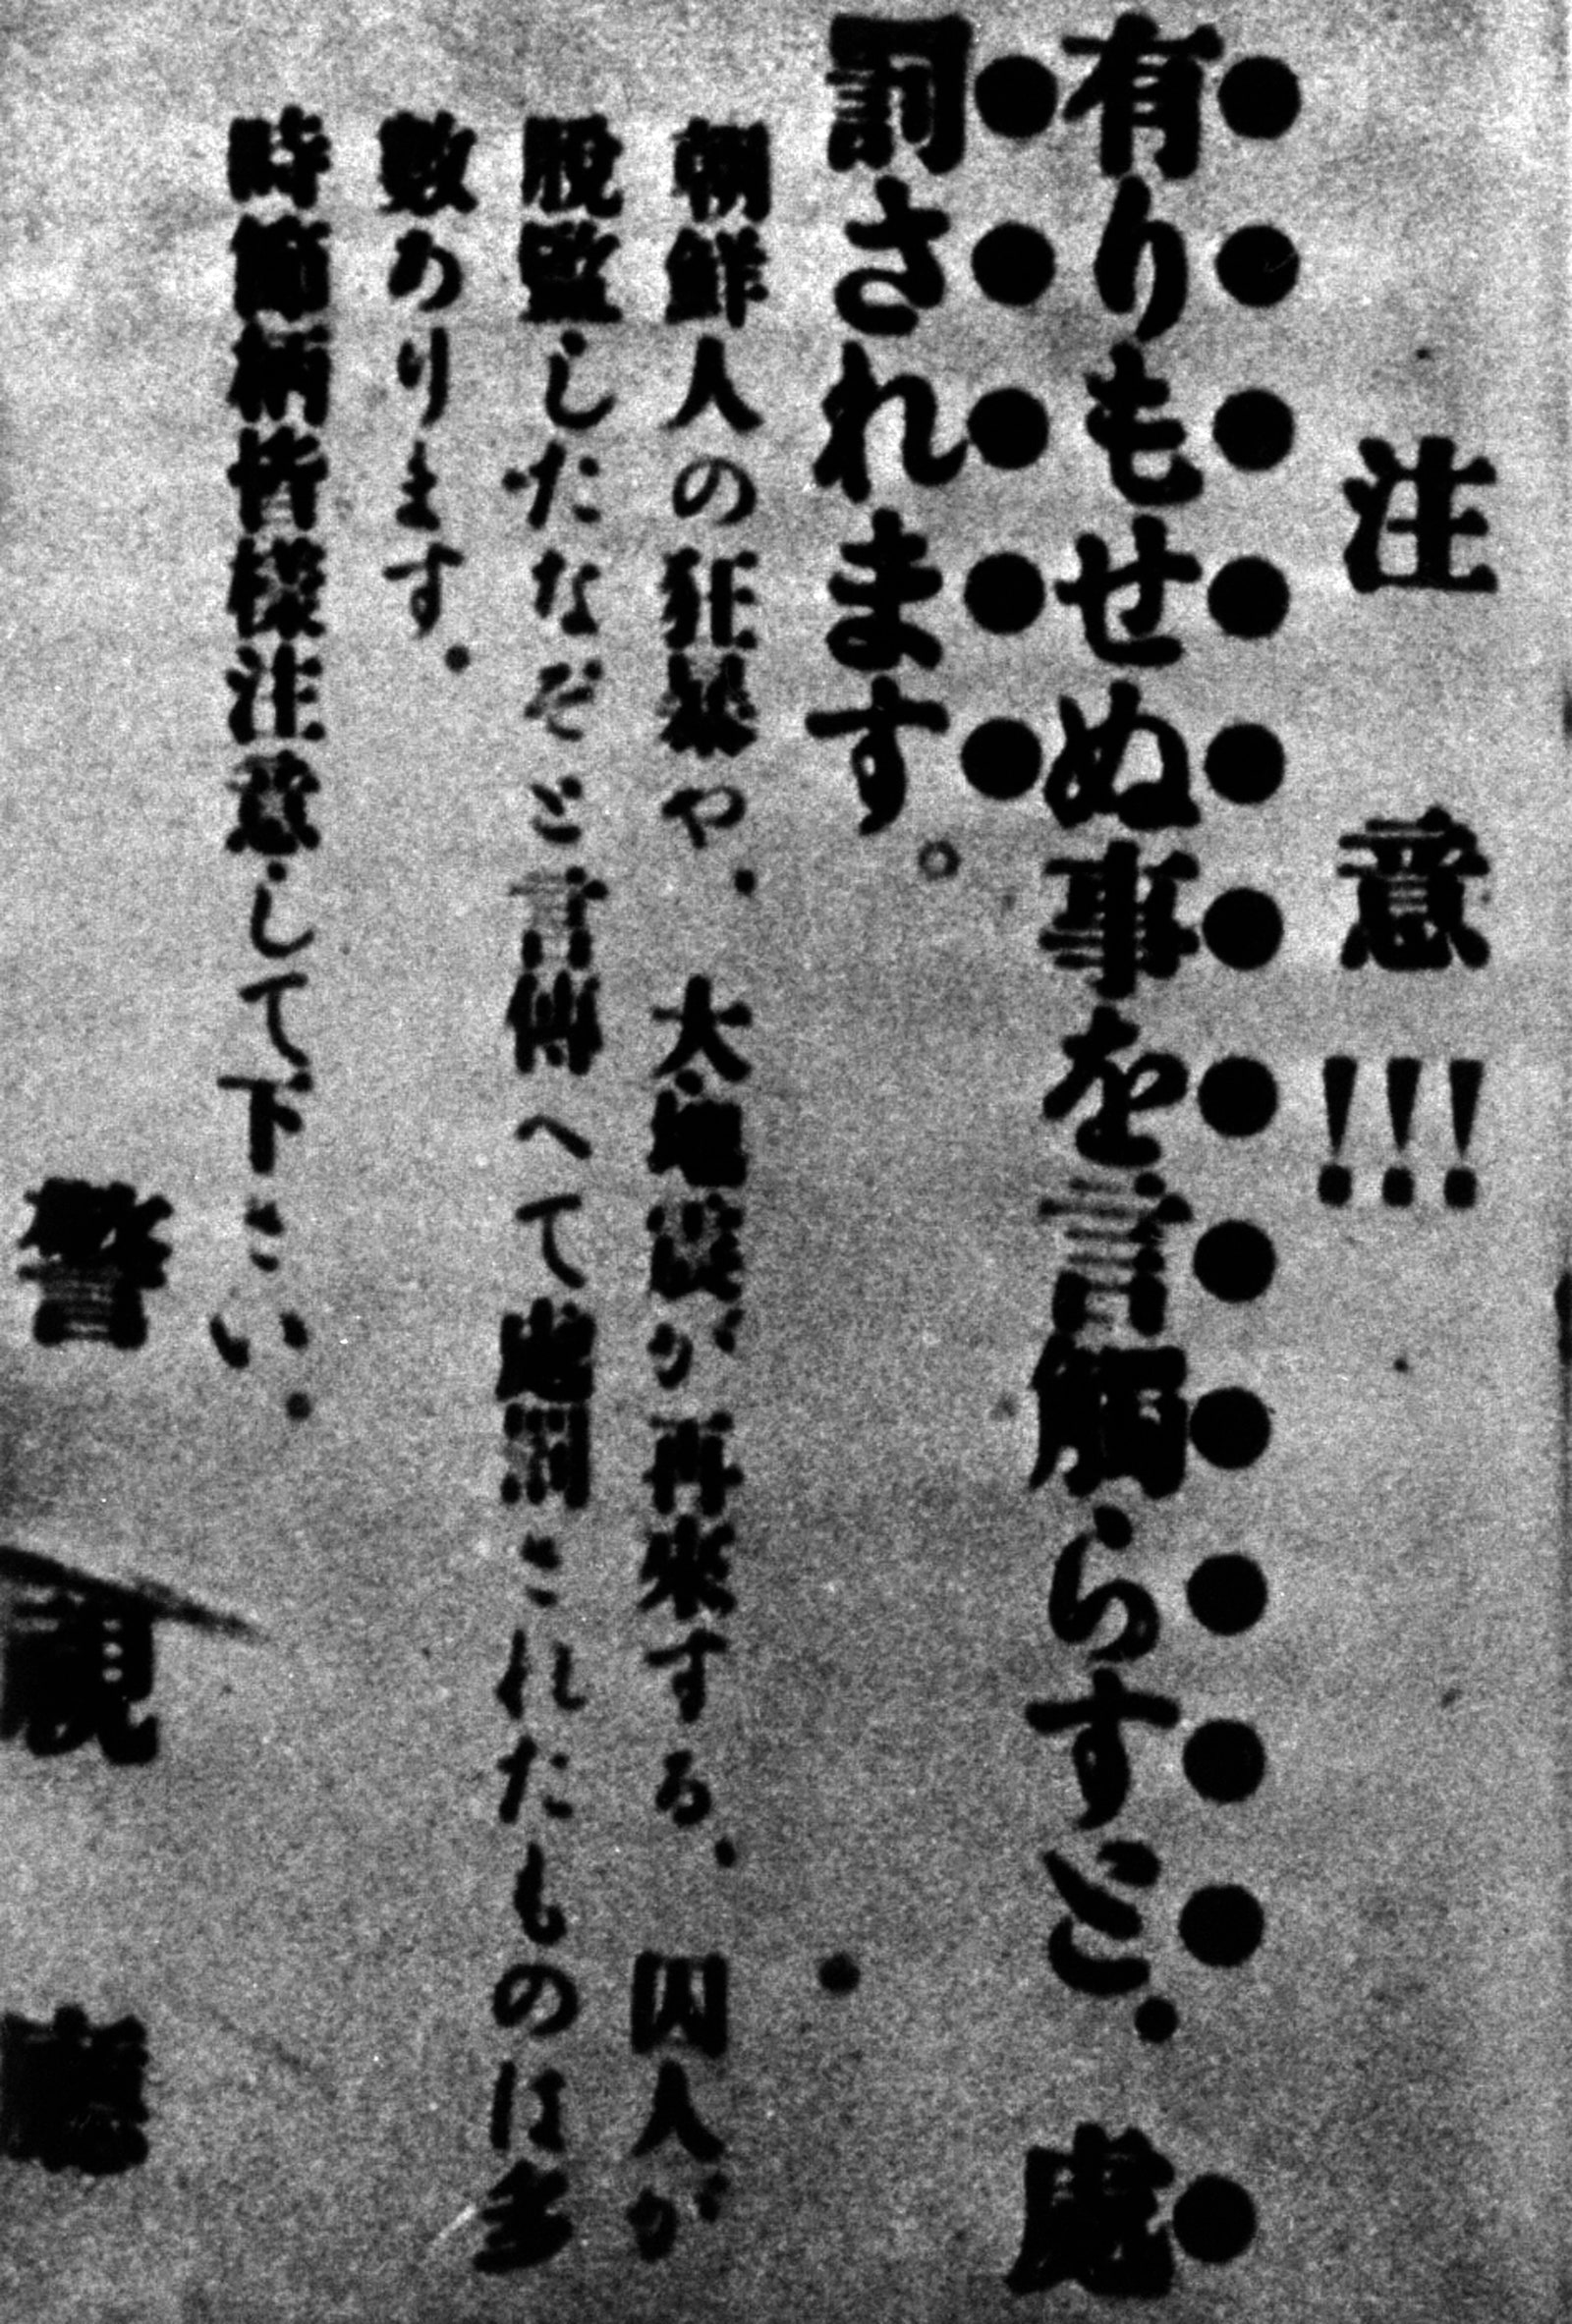 注意!!!
有りもせぬ事を言觸らすと、處
罰されます。
朝鮮人の狂暴や、大地震が再來する、囚人が
脱監したなぞと言傳へて處罰されたものは多
數あります。
時節柄皆樣注意して下さい。
警視廳